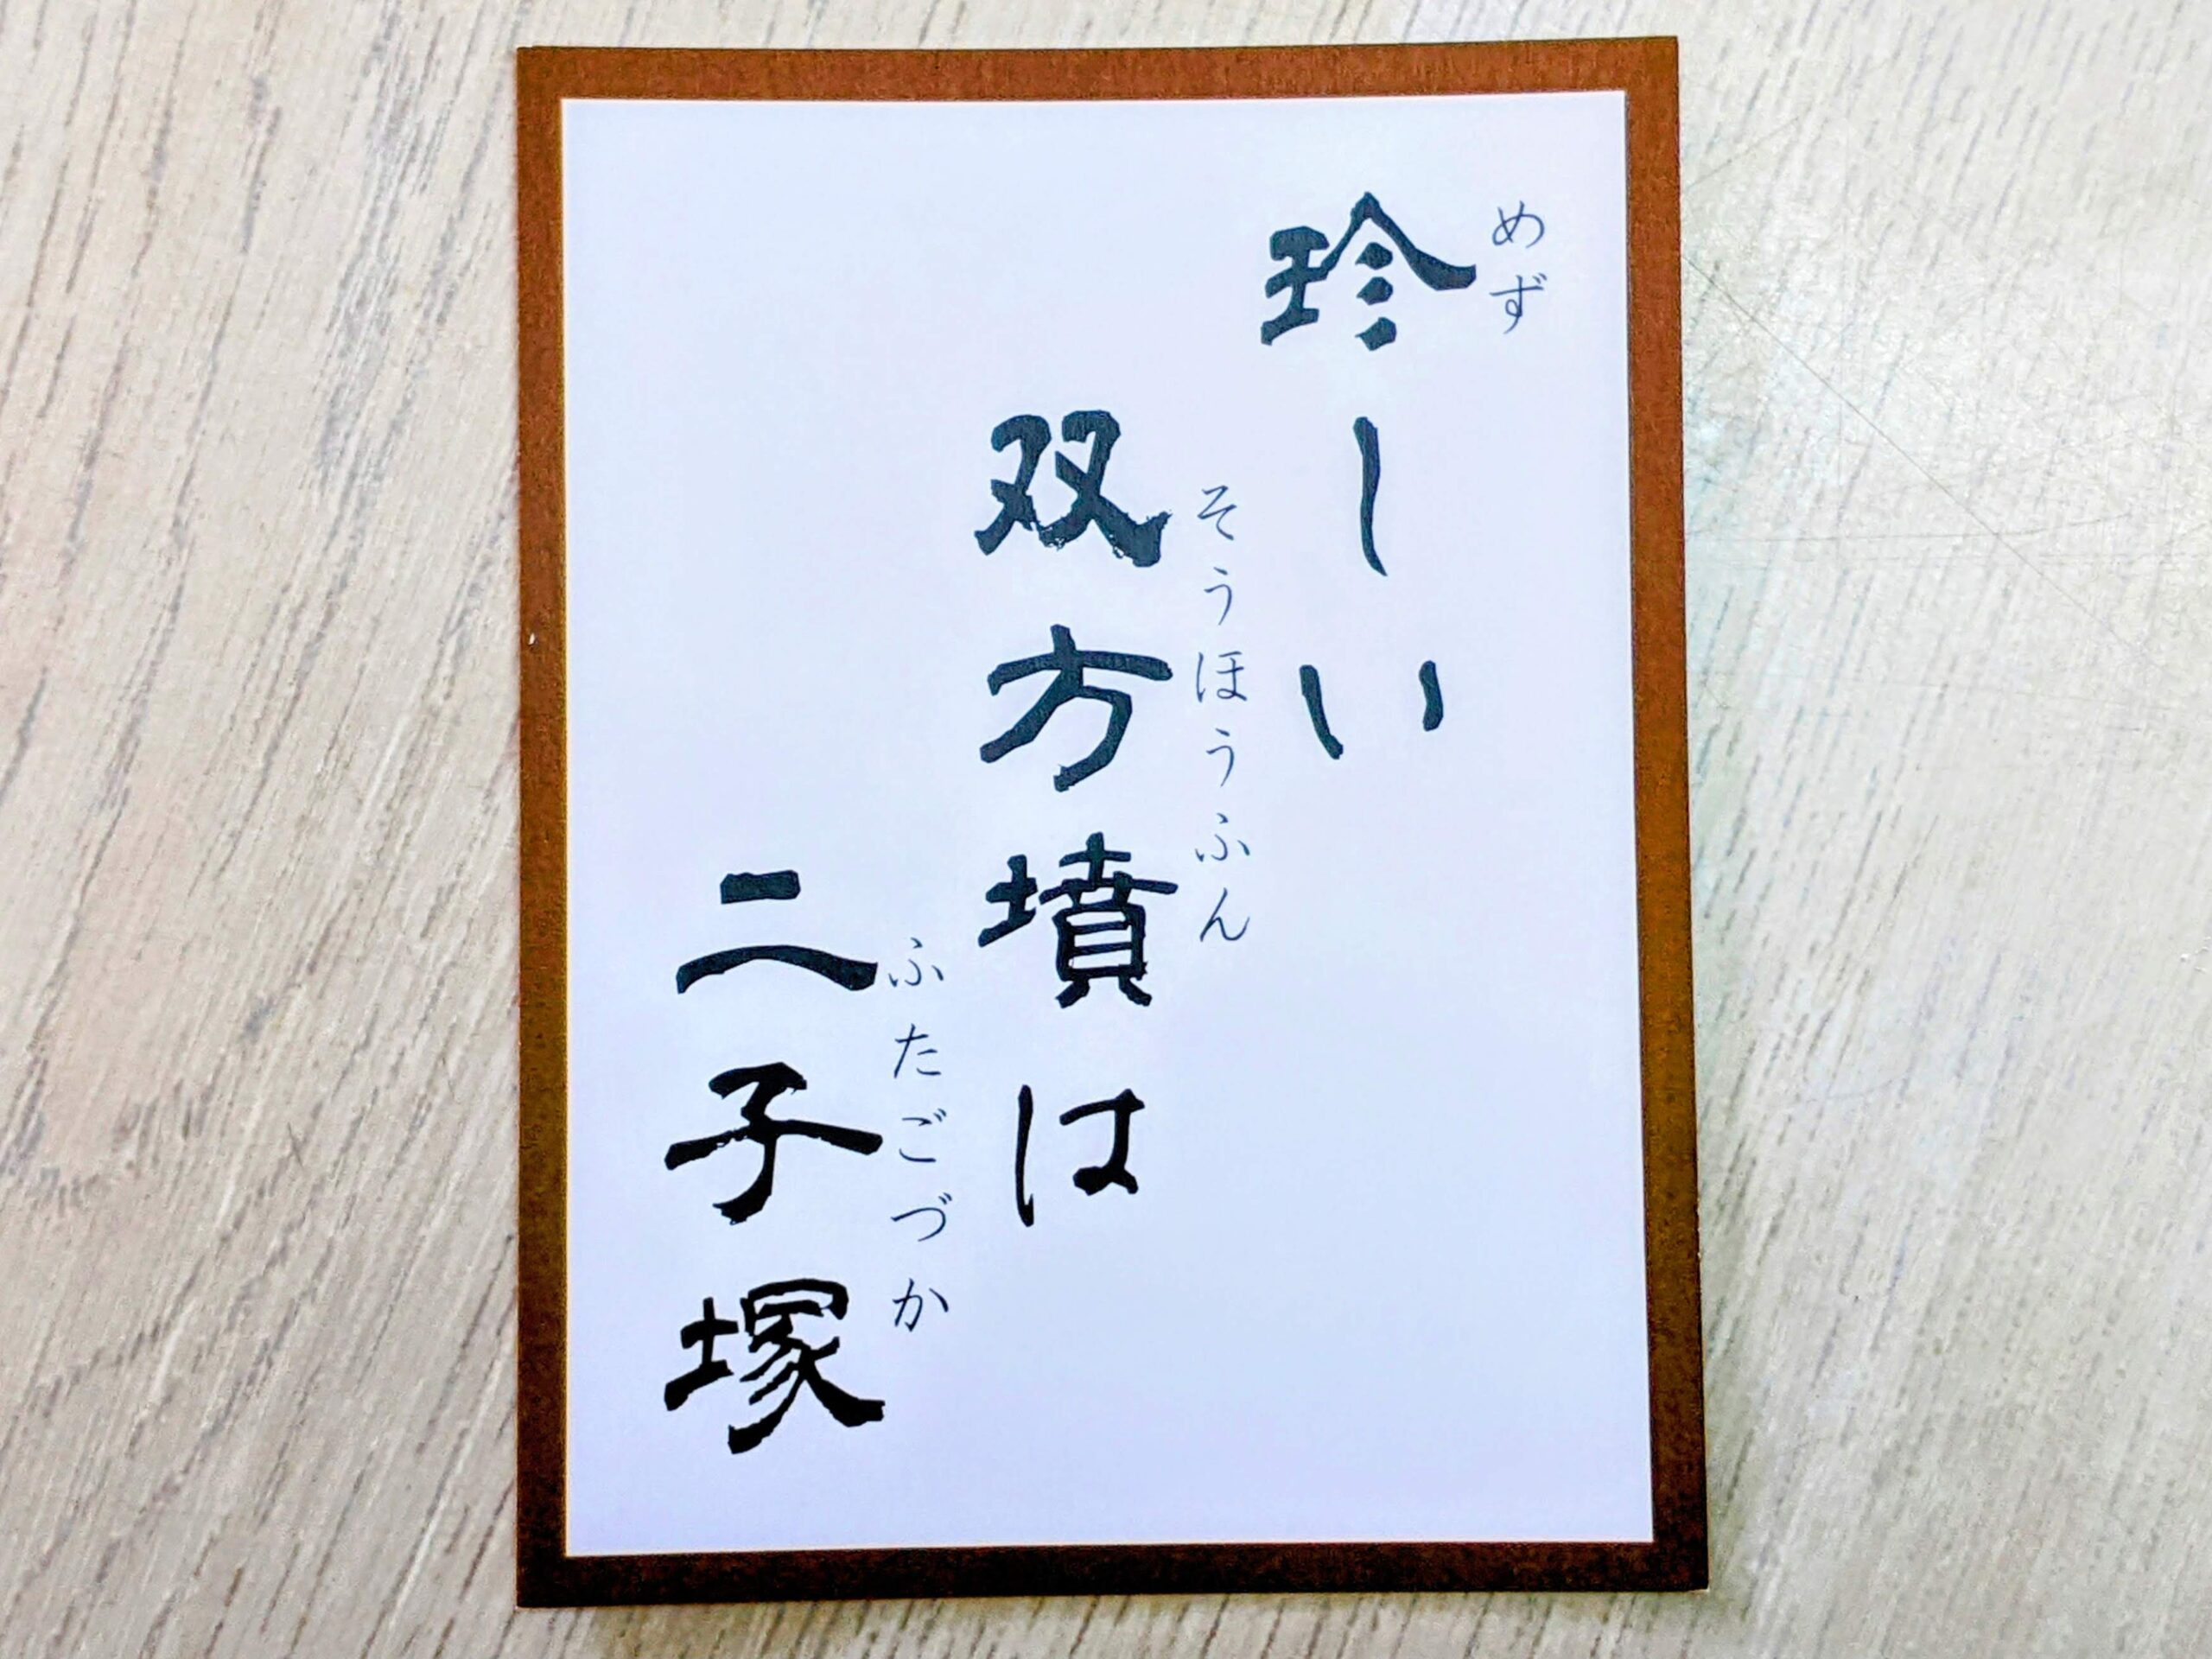 珍しい
めず
双方墳は
そうほうふん
二子塚
ふたごづか